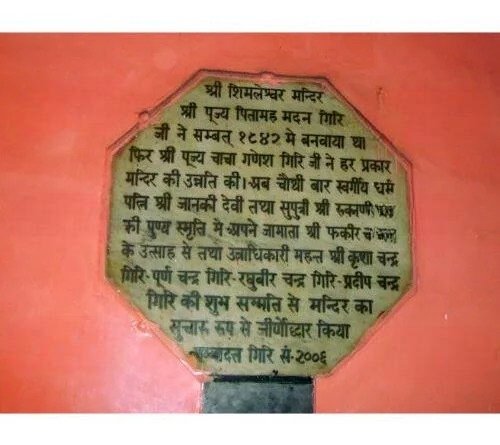 श्री शिमलेश्वर मन्दिर
श्री पूज्य पितामह मदन गिरि
जी ने सम्बत् १९४२ मे बनवाया था
फिर श्री पूज्य चाचा गणेश गिरि जी ने हर प्रकार
मन्दिर की उन्नति की। अब चौथी बार स्वर्गीय धर्म
पत्नि श्री जानकी देवी तथा सुपुत्री श्री रुकमणी
की पुण्य स्मृति मे अपने जामाता श्री फकीर
के उत्साह से तथा उत्राधिकारी महन्त श्री कृशा चन्द्र
गिरि-पूर्ण चन्द्र गिरि-रघुबीर चन्द्र गिरि-प्रदीप चन्द्र
गिरि की शुभ सम्मति से मन्दिर का
सुचारु रूप से जीर्णोद्धार किया
गिरि सं॰२००६